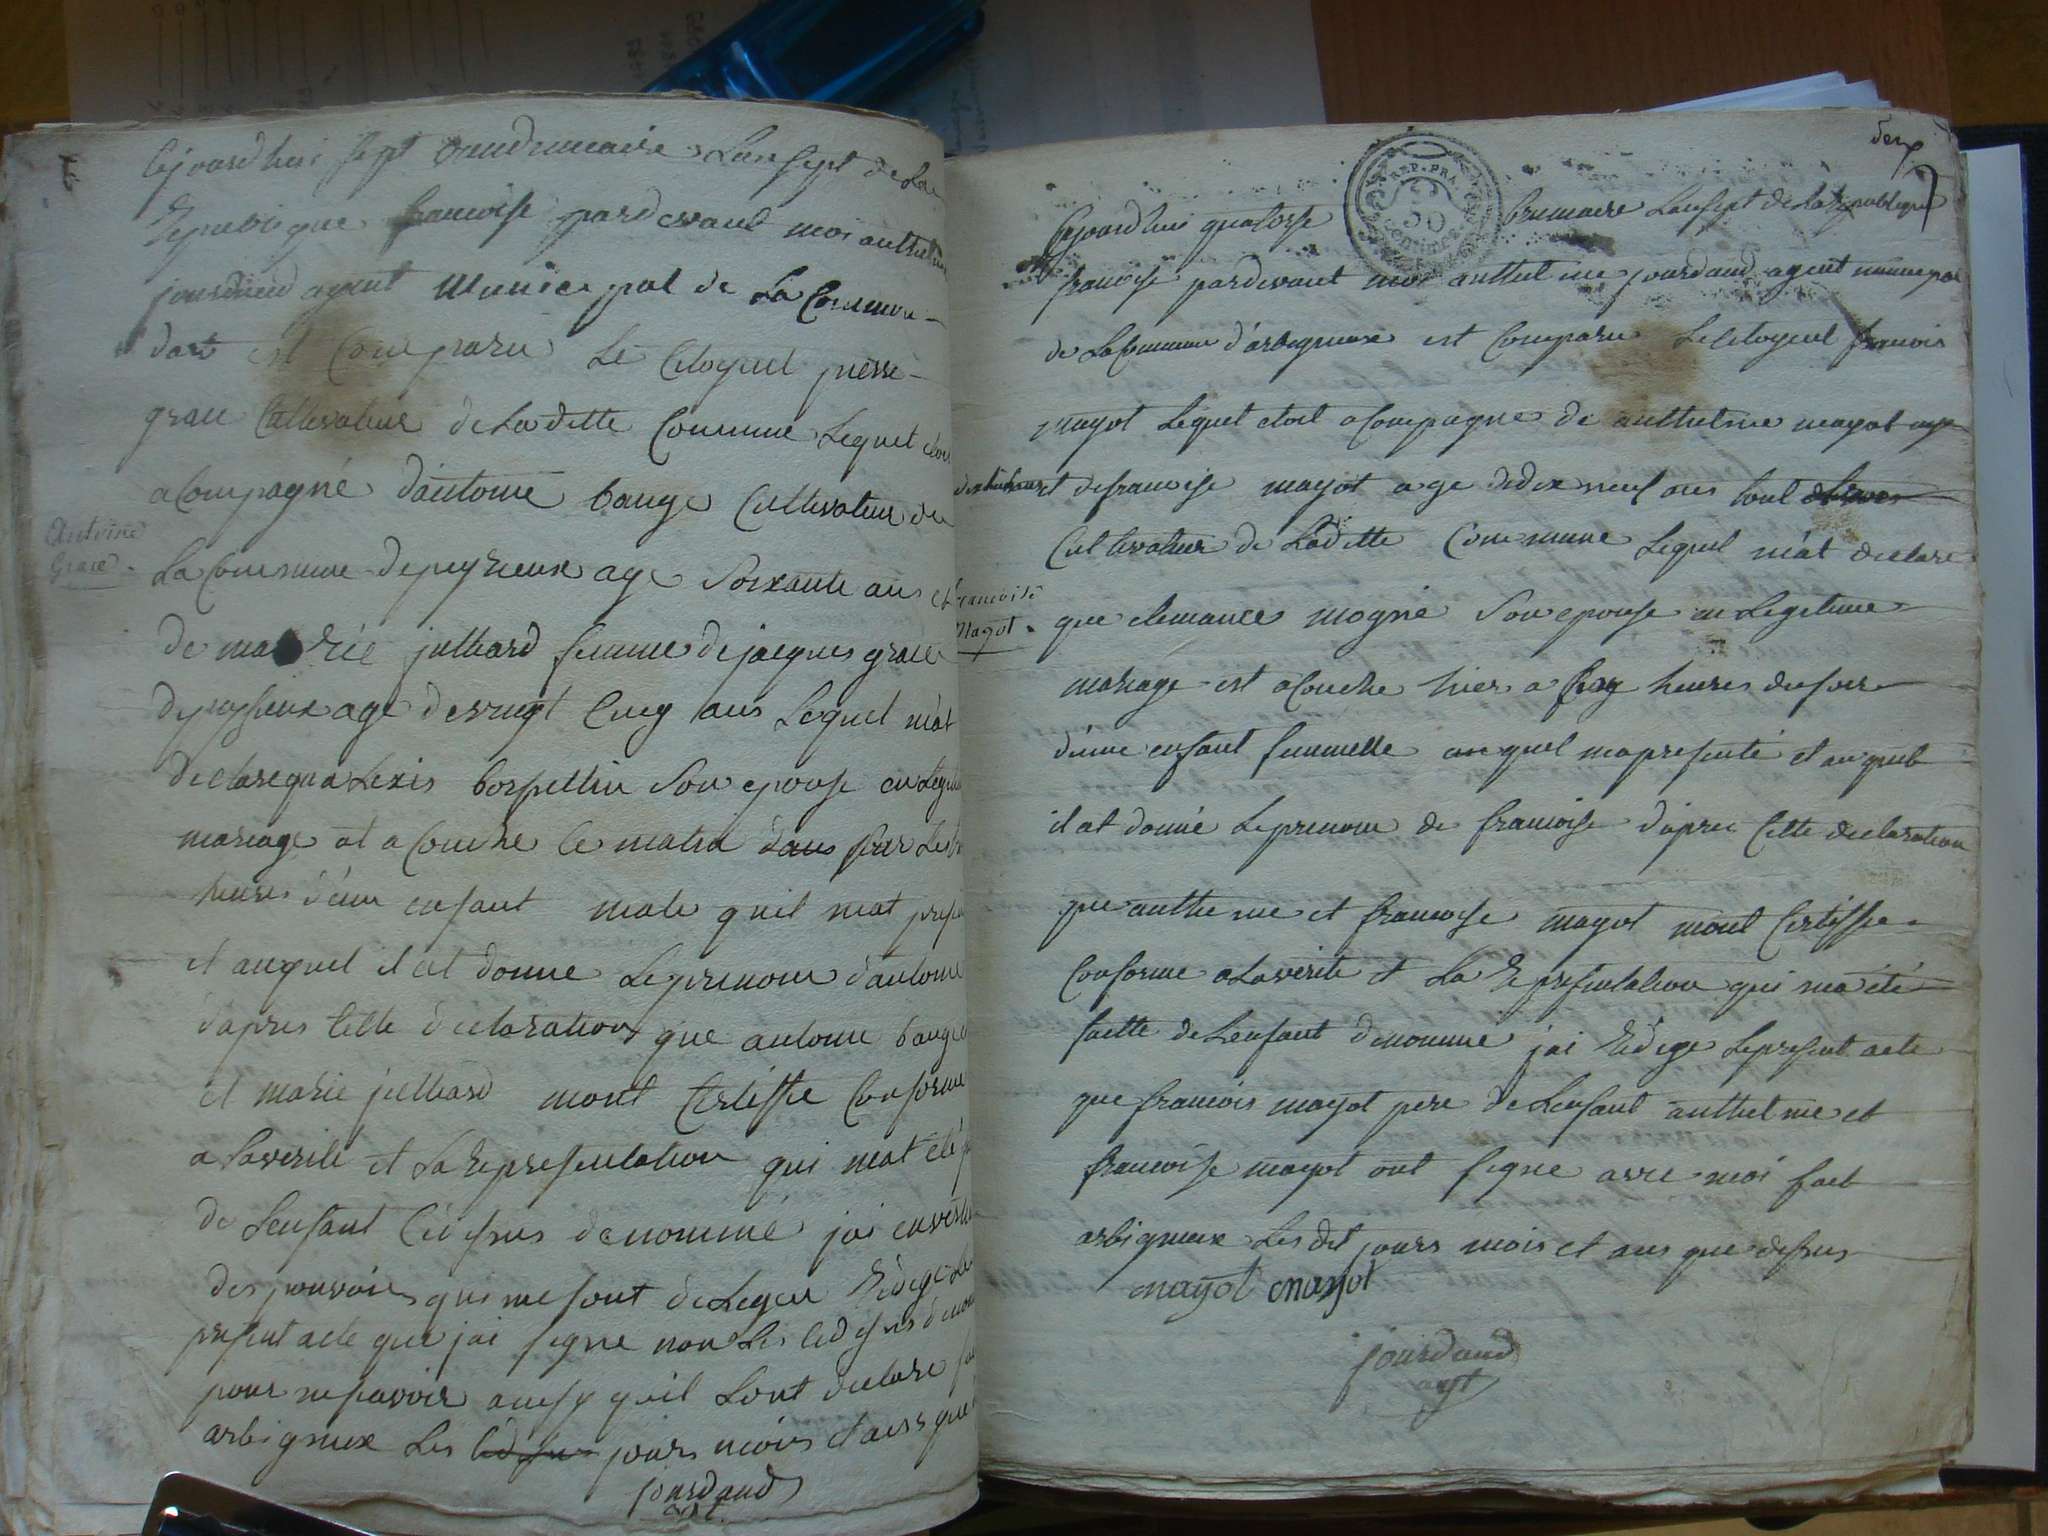 Cejourdhui sept vendemiaire Lan sept de La
Republique francoise pardevant moi anthelme
jourdand agent Municipal de La Commune
dar est Comparu Le Citoyent pierre
grace Cultivateur de Laditte Commune Lequel etoit
acompagné d'antoine bauge Cultivateur de
La Commune de peyzieux age Soixante ans et
Antoine
Grace
de marie julliard femme de jacques grace
de peysieux age de vingt Cinq ans Lequel m'at
declare qua Lexis bospellin Son epouse en Legitime
mariage at acouche Ce matin dans sur Les
heures d'un enfant male quil mat presente
et auquel il at donne Le prenom d'antoine
d'apres Cette declaration que antoine bauge
et marie julliard mont Certiffie Conforme
a Laverite et La representation qui mat été
de Lenfant Cidesus denommé jai en vertu
des pouvoirs qui me sont delegue Redige Le
present acte que jai signe non Les cidesus denomme
pour ne savoir ainsy quil Lont declare fait
arbignieux Les cidesus jours mois et ans que
jourdand
agt
deux
7
REP. FRA.
50
centimes
Cejourdhui quatorse brumaire Lansept de La Republique
francoise pardevant moi anthelme jourdand agent municipal
de La Commune d'arbignieux est Comparu Le Citoyent francois
mayot Lequel etoit acompagne de anthelme mayot age
dix huit ans et de francoise mayot age de dix neuf ans tout
Cultivateur de Laditte Commune Lequel m'at declare
francoise
Mayot
que clemance mogné Son epouse en Legitime
mariage est acouche hier a Cinq heures du soir
d'une enfant femmelle auquel ma presenté et auquel
il at donné Le prenom de francoise d'apres Cette declaration
que anthelme et francoise mayot mont Certiffie
Conforme a La verite et La Representation qui ma été
faitte de Lenfant denommé jai Redige Le present acte
que francois mayot pere de Lenfant anthelme et
francoise mayot ont signe avec moi fait
arbignieux Les dit jours mois et ans que desus
mayot mayot
jourdand
agt